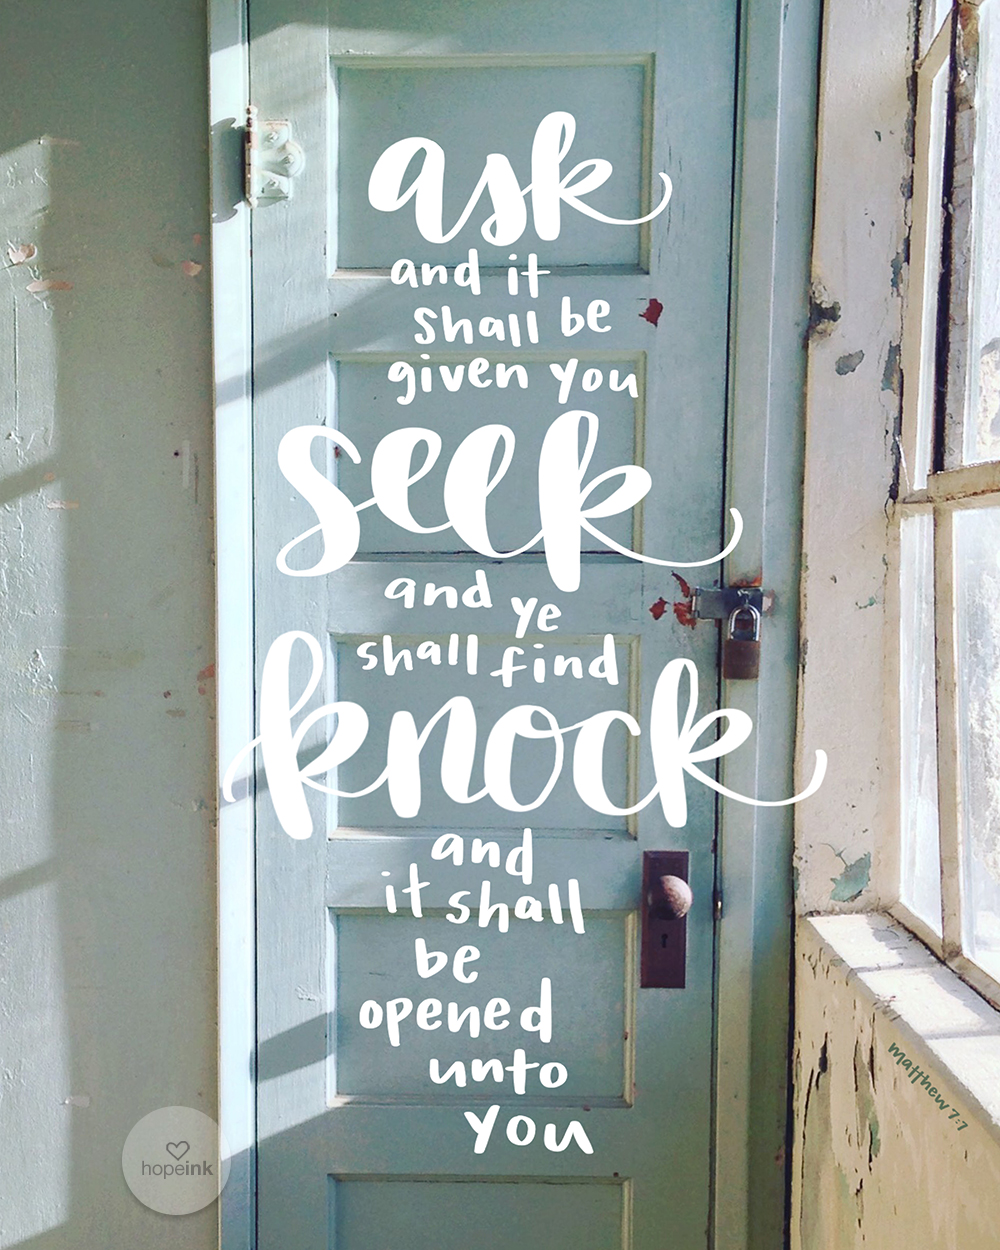 ask
and it
shall be
given you
seek
and ye
shall find
knock
and
it shall
be
opened
unto
you
matthew 7:7
hopeink